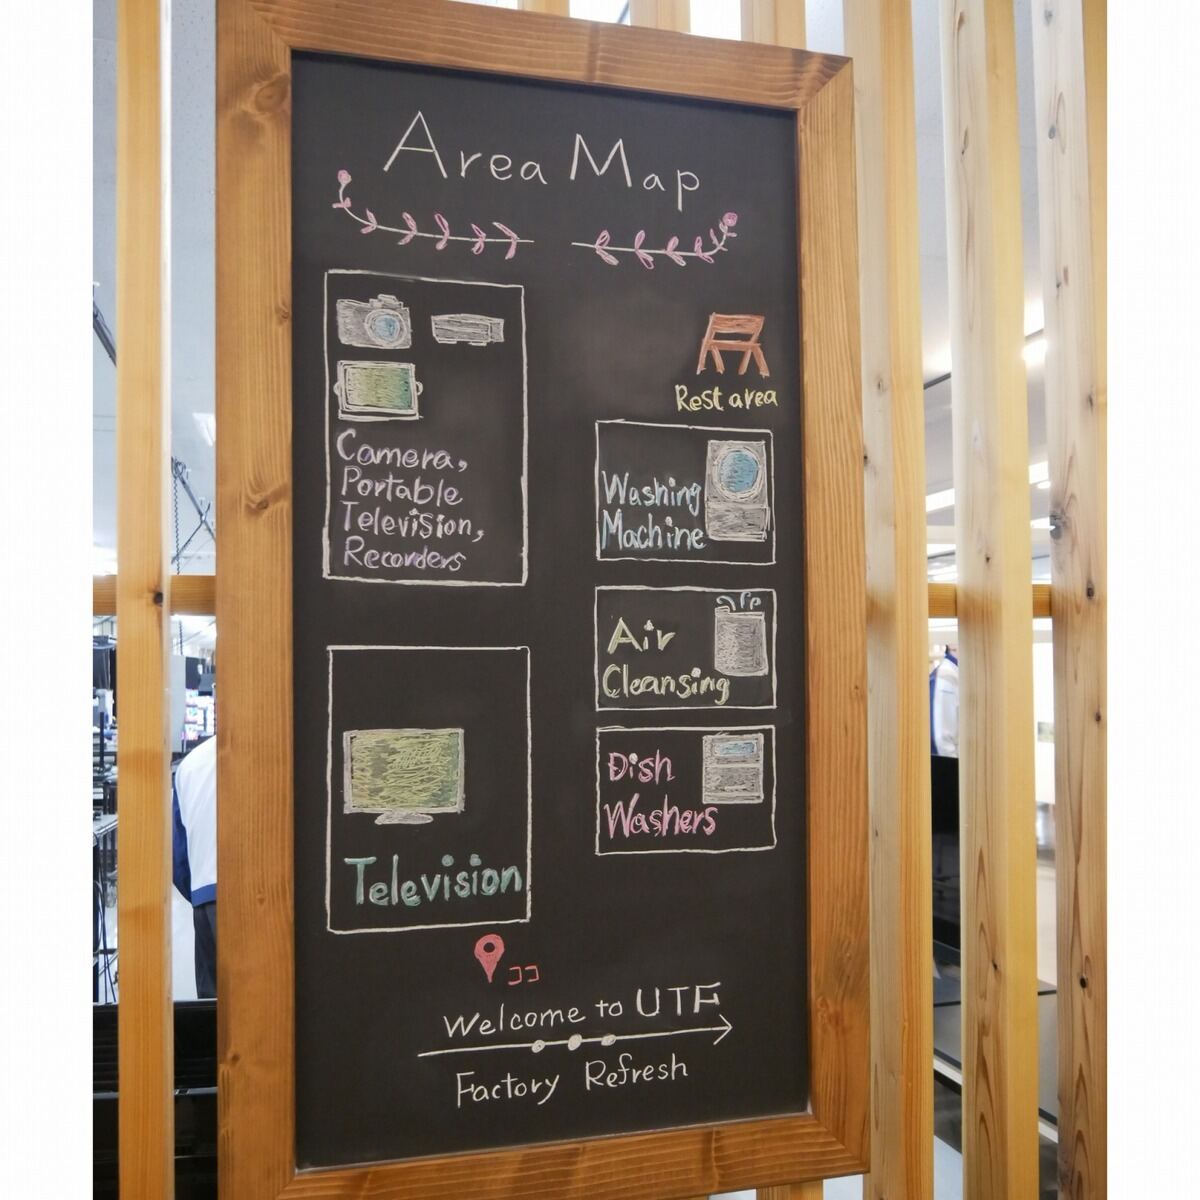 Area Map
Camera,
Portable
Television,
Recorders
Rest area
Washing
Machine
Air
Cleansing
Dish
Washers
Television
ココ
Welcome to UTF
Factory Refresh